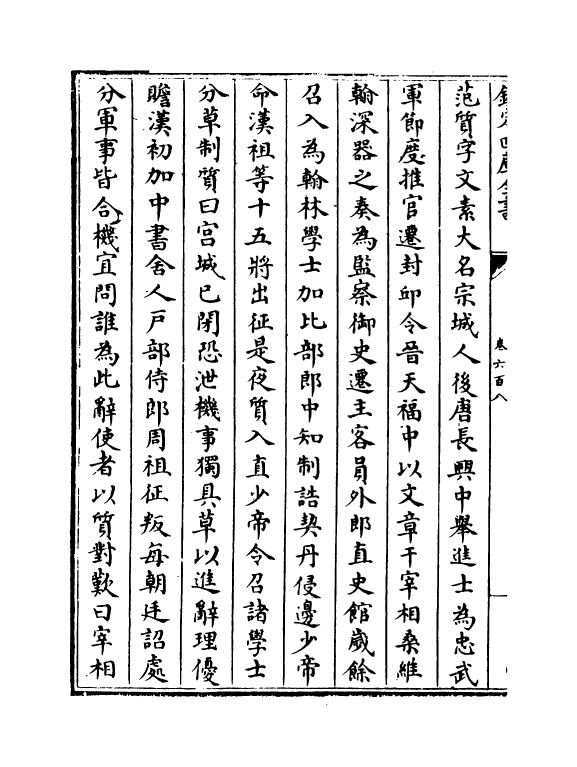 欽定四庫全書
卷六百八
范質字文素大名宗城人後唐長興中舉進士為忠武
軍節度推官遷封邱令晉天福中以文章干宰相桑維
翰深器之奏為監察御史遷主客員外郎直史館歲餘
召入為翰林學士加比部郎中知制誥契丹侵邊少帝
命漢祖等十五將出征是夜質入直少帝令召諸學士
分草制質曰宫城已閉恐泄機事獨具草以進辭理優
贍漢初加中書舍人戸部侍郎周祖征叛每朝廷詔處
分軍事皆合機宜問誰為此辭使者以質對歎曰宰相